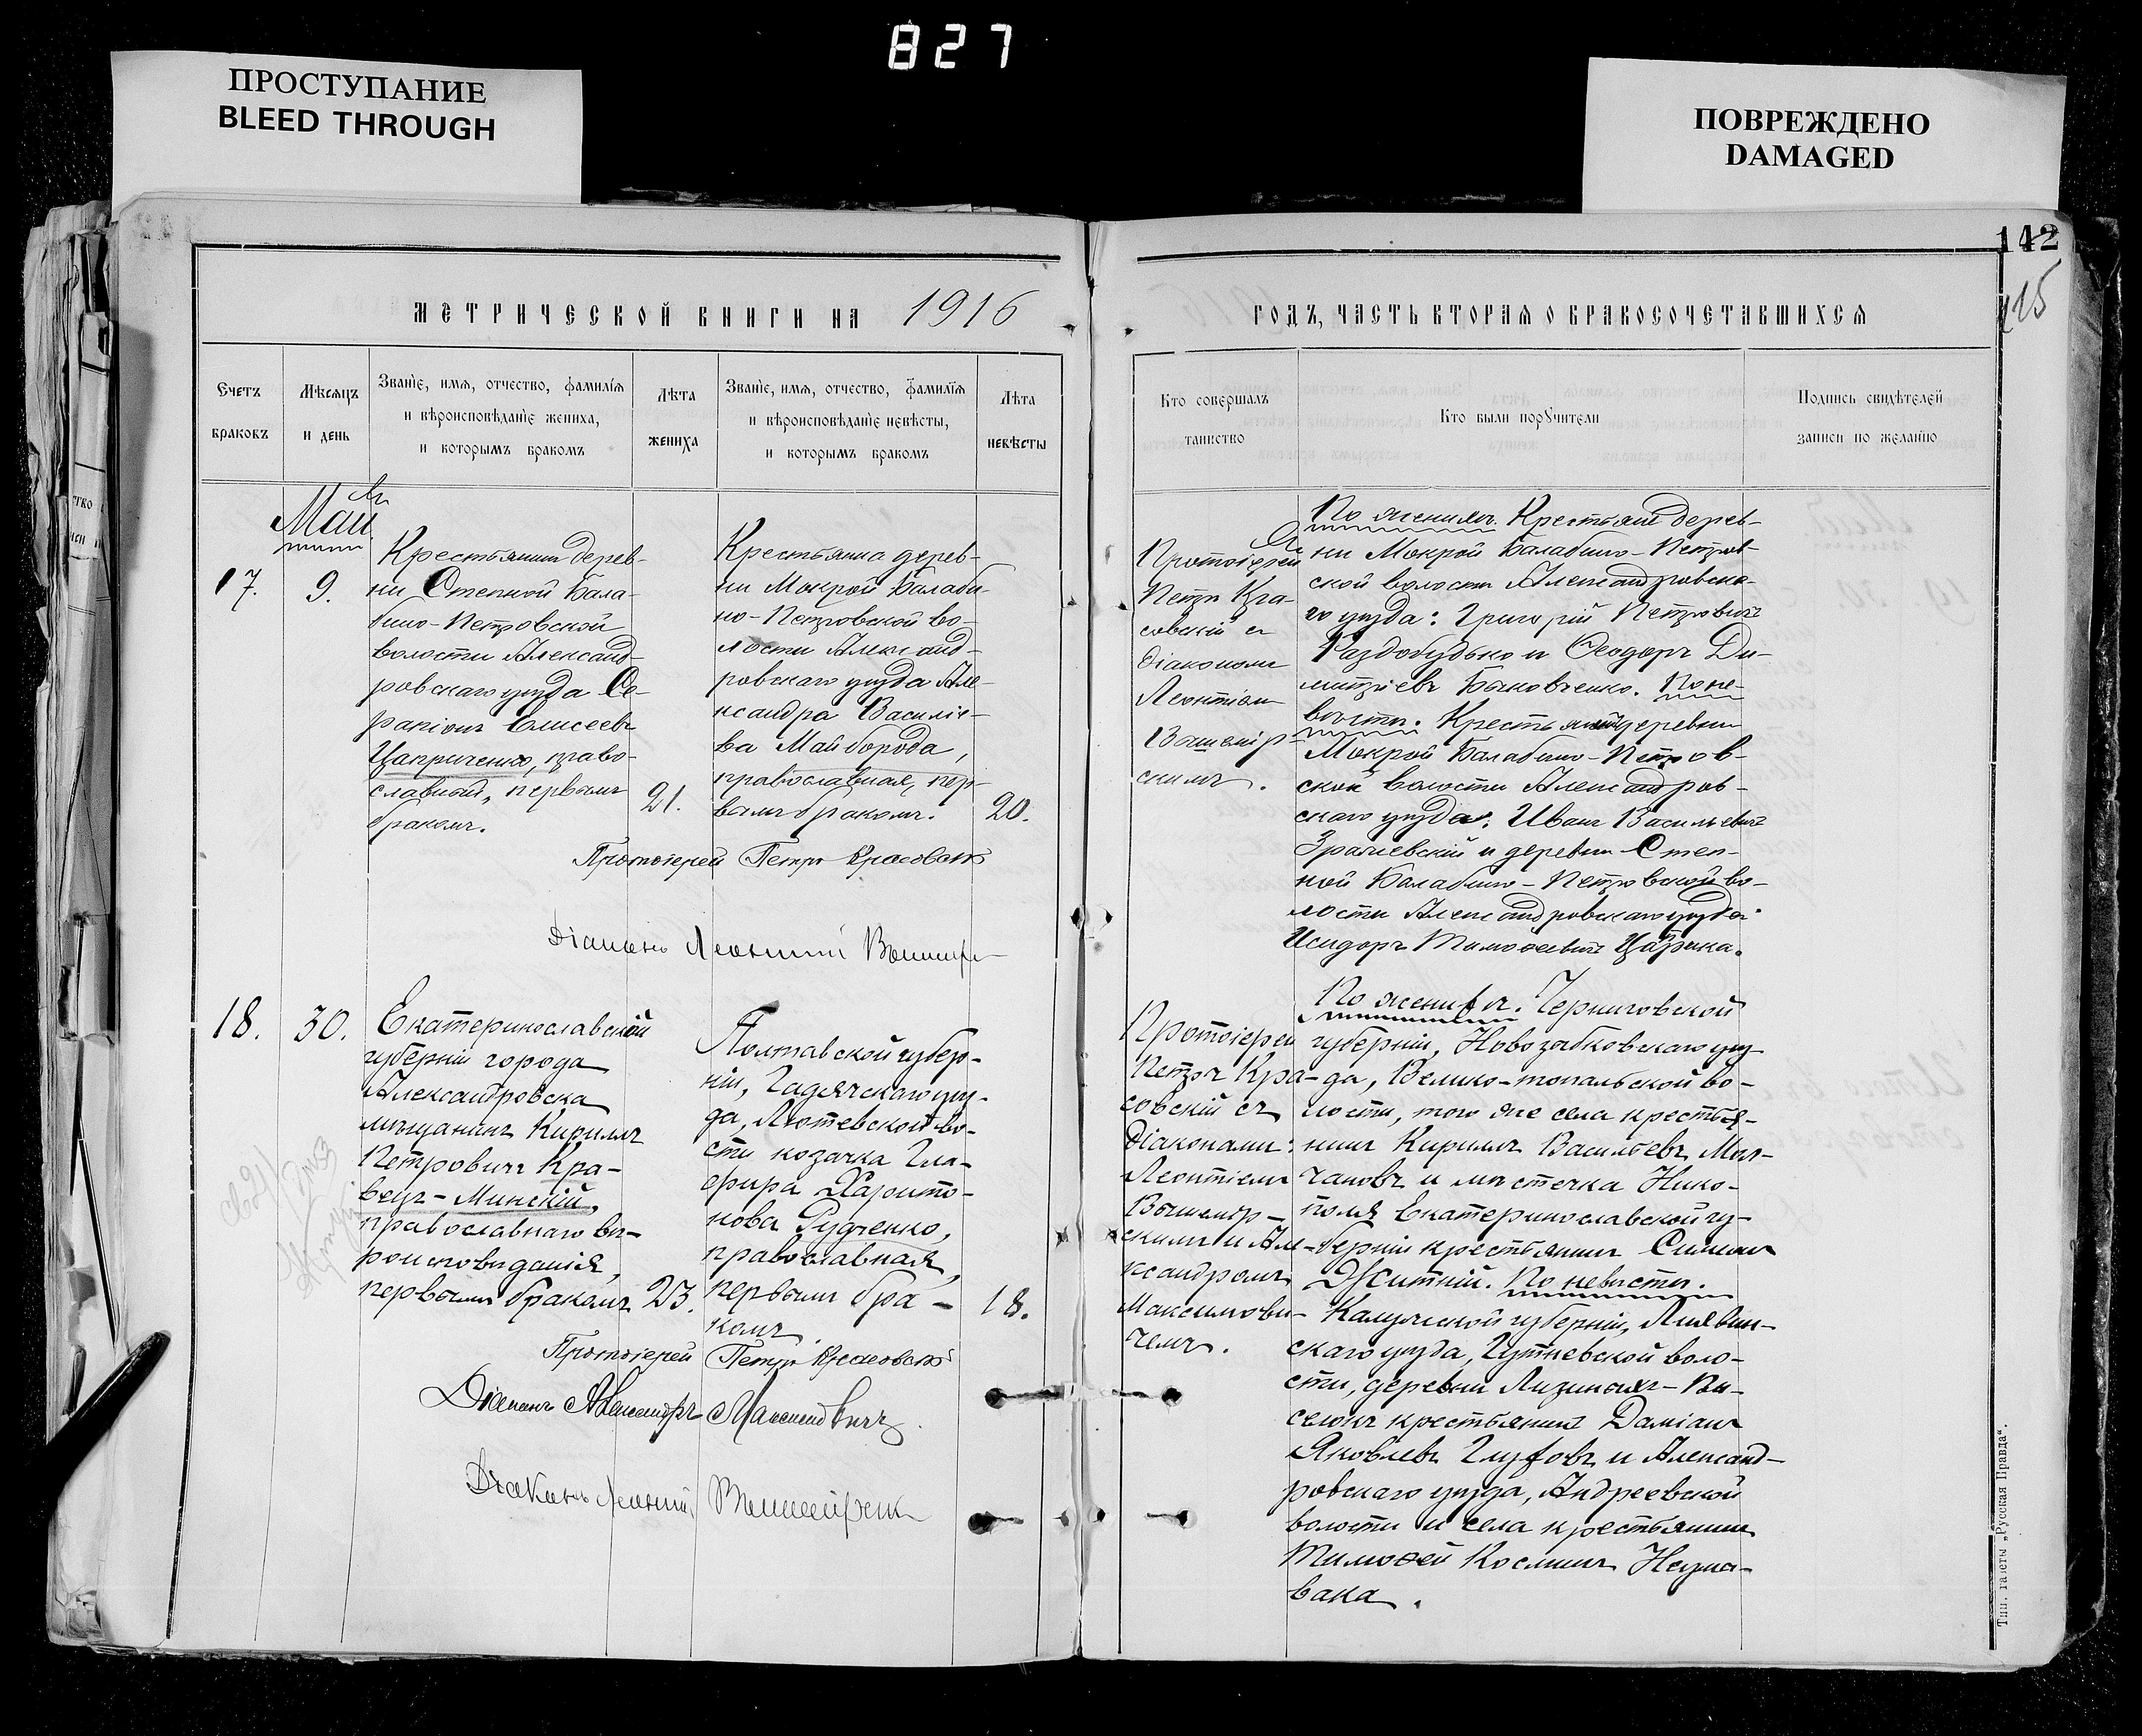 827
ПРОСТУПАНИЕ
BLEED THROUGH
ПОВРЕЖДЕНО
DAMAGED
142
115
МЕТРИЧЕСКОЙ КНИГИ НА 1916
ГОДЪ, ЧАСТЬ ВТОРАЯ О БРАКОСОЧЕТАВШИХСЯ
Счетъ
браковъ
Мѣсяцъ
и день
Званіе, имя, отчество, фамилія
и вѣроисповѣданіе жениха,
и которымъ бракомъ
Лѣта
жениха
Званіе, имя, отчество, фамилія
и вѣроисповѣданіе невѣсты,
и которымъ бракомъ
Лѣта
невѣсты
Кто совершалъ
таинство
Кто были поручители
Подпись свидѣтелей
записи по желанію
Май
17.
9.
Крестьянинъ дерев-
ни Степной Бала-
бино-Петровской
волости Александ-
ровскаго уѣзда Се-
рапіонъ Елисеевъ
Цаприченко, право-
славный, первымъ
бракомъ.
21.
Крестьянка дерев-
ни Мокрой Балаби-
но-Петровской во-
лости Александ-
ровскаго уѣзда Але-
ксандра Василіе-
ва Майборода,
православная, пер-
вымъ бракомъ.
20.
Протоіерей Петръ Красовскій
Діаконъ Леонтій
Протоіерей
Петръ Кра-
совскій съ
діакономъ
Леонтіем
Вышемір-
скимъ.
По женихѣ. Крестьяне дерев-
ни Мокрой Балабино-Петров-
ской волости Александровска-
го уѣзда: Григорій Петровичъ
Раздобудько и Ѳеодоръ Ди-
митріевъ Быковченко. По не-
вѣстѣ. Крестьяне деревни
Мокрой Балабино-Петров-
ской волости Александров-
скаго уѣзда: Иванъ Васильевичъ
и деревни Степ-
ной Балабино-Петровской во-
лости Александровскаго уѣзда
Исидоръ Тимоѳеевичъ Цаприка.
18.
30.
Екатеринославской
губерніи города
Александровска
мѣщанинъ Кириллъ
Петровичъ Кра-
вецъ-Минскій,
православнаго вѣ-
роисповѣданія,
первымъ бракомъ
23.
Полтавской губер-
ніи, Гадячскаго уѣз-
да, Лютевской во-
сти козачка Гла-
фира Харито-
нова Рудченко,
православная,
первымъ бра-
комъ.
18.
Протоіерей Петръ Красовскій
Діаконъ Александръ Максимовичъ.
Діаконъ Леонтій
Протоіерей
Петръ Кра-
совскій съ
діаконами:
Леонтіемъ
Вышемір-
скимъ и Але-
ксандромъ
Максимови-
чемъ.
По женихѣ. Черниговской
губерніи, Новозыбковскаго уѣз-
да, Велико-топальской во-
лости, того же села крестья-
нинъ Кириллъ Васильевъ Мол-
чановъ и мѣстечка Нико-
поля Екатеринославской гу-
берніи крестьянинъ Симеонъ
Житній. По невѣстѣ.
Калужской губерніи,
скаго уѣзда, воло-
сти, деревни Вы-
селокъ крестьянинъ Даміанъ
Яковлевъ и Александ-
ровскаго уѣзда, Андреевской
волости и села крестьянинъ
Тимоѳей Косминъ Неума-
вака.
Тип. газеты „Русская Правда“.